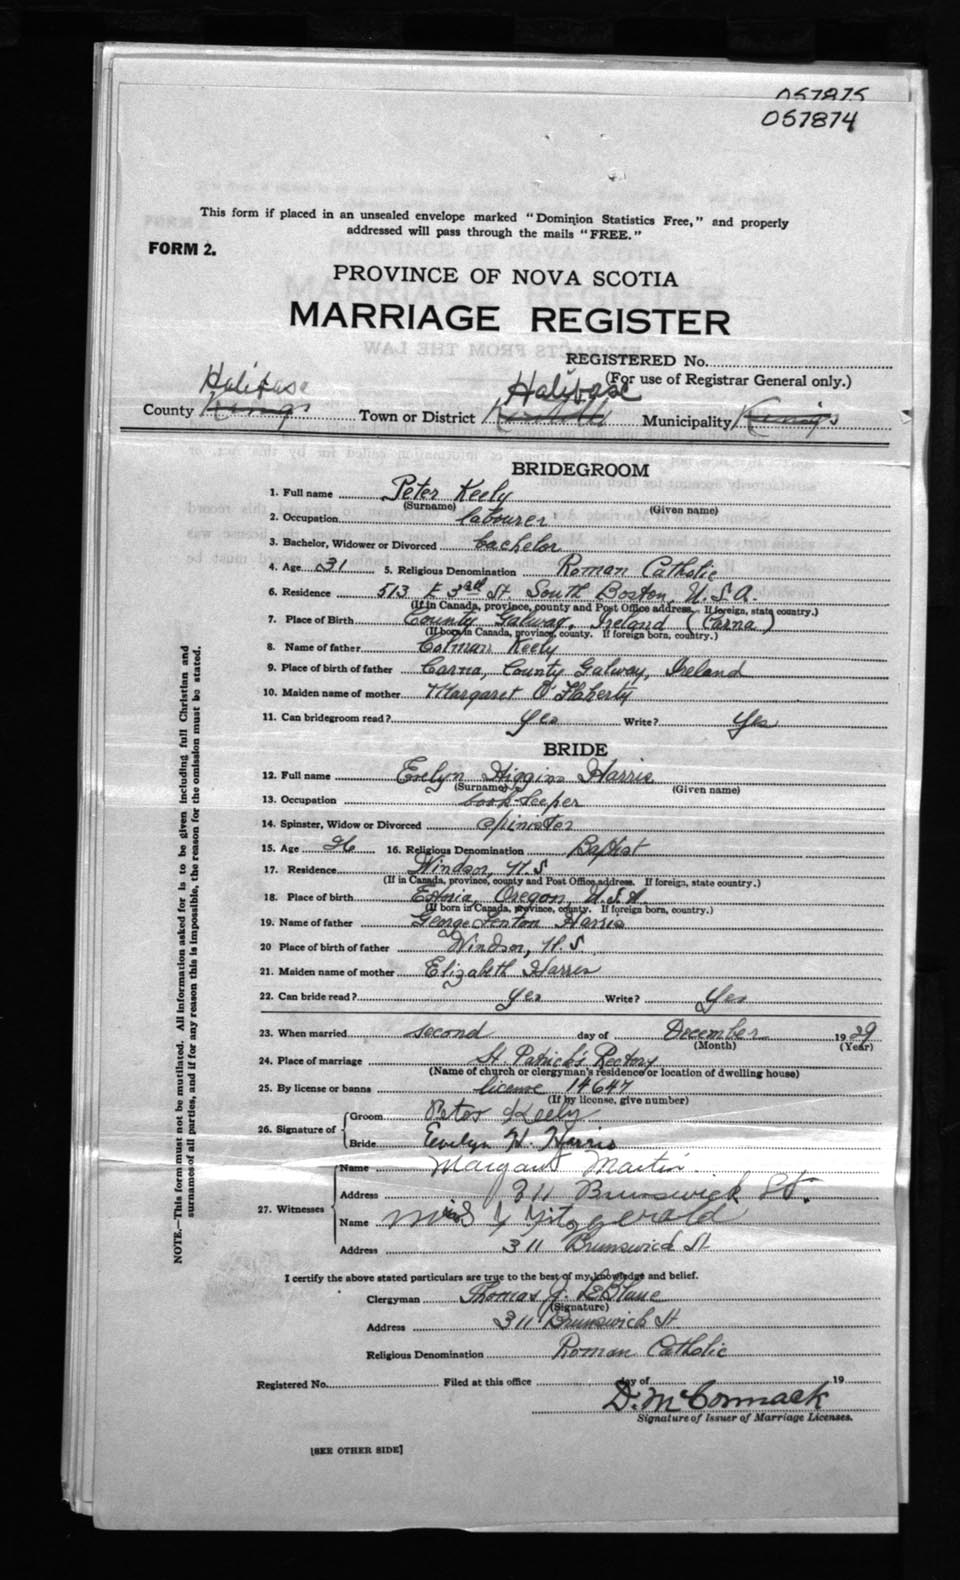 057875
057874
This form if placed in an unsealed envelope marked "Dominion Statistics Free," and properly
addressed will pass through the mails "FREE."
FORM 2.
PROVINCE OF NOVA SCOTIA
MARRIAGE REGISTER
REGISTERED No.
(For use of Registrar General only.)
Halifax Halifax
County Kings Town or District Municipality Kings
BRIDEGROOM
1. Full name Peter Keely
(Surname) (Given name)
2. Occupation labourer
3. Bachelor, Widower or Divorced bachelor
4. Age 31 5. Religious Denomination Roman Catholic
6. Residence 513 E 3rd St. South Boston, U.S.A.
(If in Canada, province, county and Post Office address. If foreign, state country.)
7. Place of Birth County Galway, Ireland (Carna)
(If born in Canada, province, county. If foreign born, country.)
8. Name of father Colman Keely
9. Place of birth of father Carna, County Galway, Ireland
10. Maiden name of mother Margaret O'Flaherty
11. Can bridegroom read? Yes Write? Yes
BRIDE
12. Full name Evelyn Higgins Harris
(Surname) (Given name)
13. Occupation book-keeper
14. Spinster, Widow or Divorced spinster
15. Age 26 16. Religious Denomination Baptist
17. Residence Windsor, N.S
(If in Canada, province, county and Post Office address. If foreign, state country.)
18. Place of birth Oregon, U.S.A.
(If born in Canada, province, county. If foreign born, country.)
19. Name of father George Fenton Harris
20 Place of birth of father Windsor, N.S
21. Maiden name of mother Elizabeth Harris
22. Can bride read? Yes Write? Yes
23. When married second day of December 1929
(Month) (Year)
24. Place of marriage St. Patrick's Rectory
(Name of church or clergyman's residence or location of dwelling house)
25. By license or banns license 14647
(If by license, give number)
26. Signature of Groom Peter Keely
Bride Evelyn H. Harris
27. Witnesses
Name Margaret Martin
Address 311 Brunswick St.
Name Fitzgerald
Address 311 Brunswick St
I certify the above stated particulars are true to the best of my knowledge and belief.
Clergyman Thomas J. LeBlanc
(Signature)
Address 311 Brunswick St.
Religious Denomination Roman Catholic
Registered No. Filed at this office day of 19
D. McCormack
Signature of Issuer of Marriage Licenses.
[SEE OTHER SIDE]
NOTE.—This form must not be mutilated. All information asked for is to be given including full Christian and
surnames of all parties, and if for any reason this is impossible, the reason for the omission must be stated.